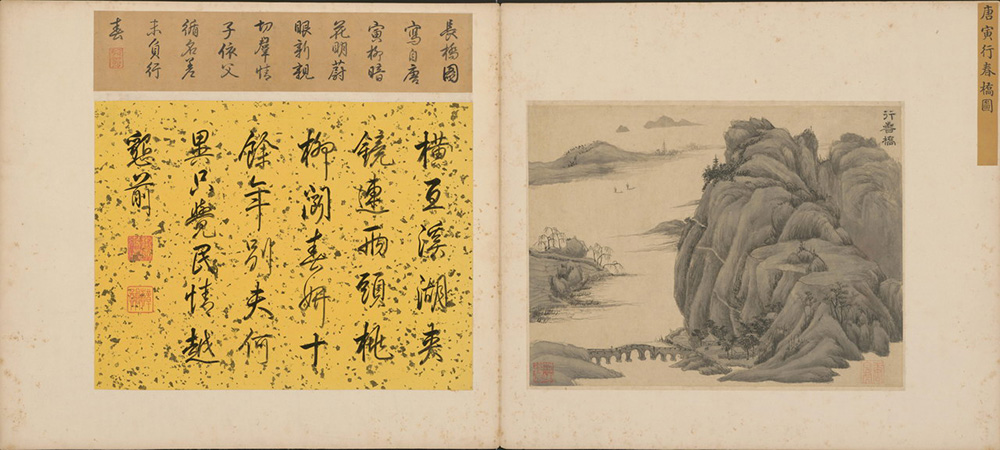 唐寅行春橋圖
行春橋
長橋圖
寫自唐
寅柳暗
花明蔚
眼新親
切羣情
子依父
循名差
未負行
春
橫亙溪湖夾
鏡連兩頭桃
柳閙春妍十
餘年別夫何
異只覺民情越
懇前